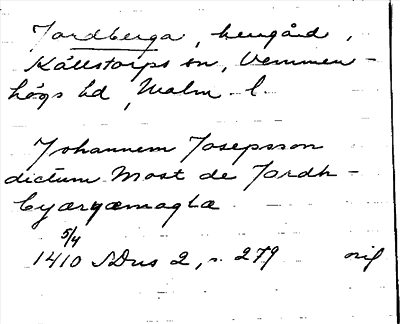 Jordberga, herrgård,
Källstorps sn, Vemmen-
högs hd, Malm. l.
Johannem Josepsson
dictum Most de Jordh-
byærgæmaglæ
5/4
1410 SDns 2, s. 279 orig